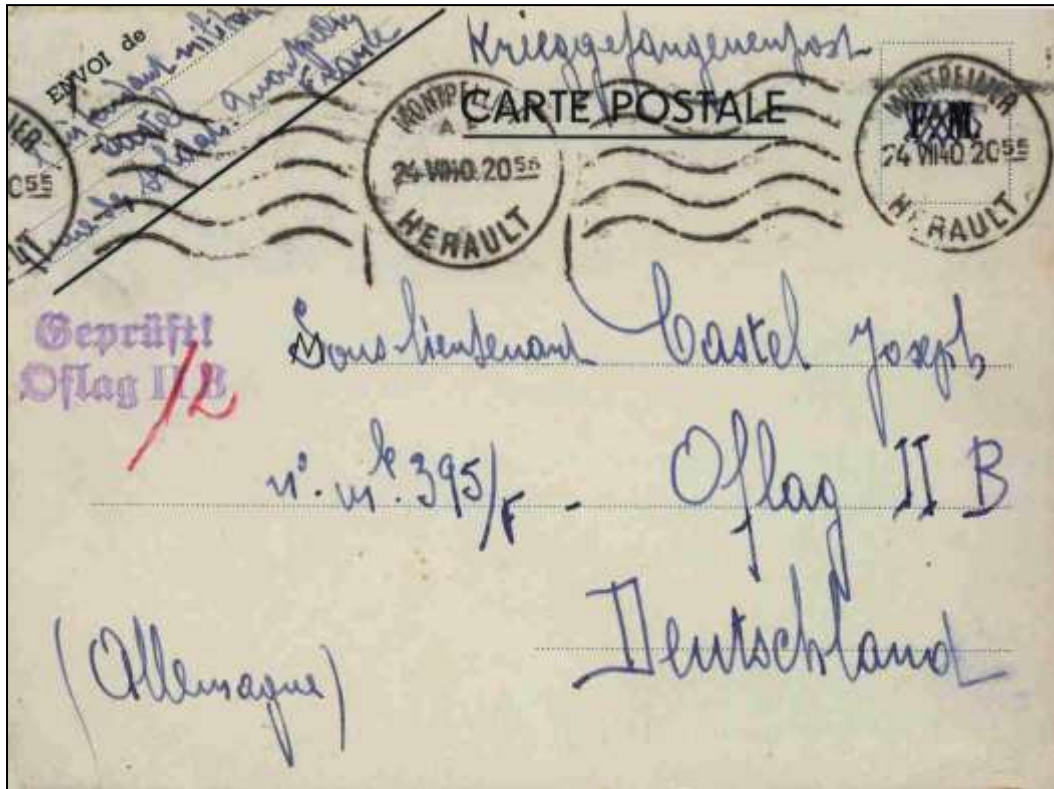 ENVOI de
Castel
France
Kriegsgefangenenpost
CARTE POSTALE
MONTPELLIER
24 VII 40. 20 55
HERAULT
MONTPELLIER
24 VII 40. 20 55
HERAULT
F.M.
Geprüft!
Oflag II B
12
Sous-lieutenant Castel Joseph
n°. mle. 395/F - Oflag II B
Deutschland
(Allemagne)